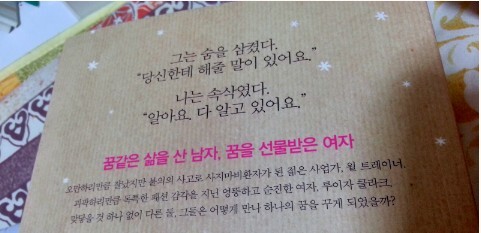 그는 숨을 삼켰다.
"당신한테 해줄 말이 있어요."
나는 속삭였다.
"알아요. 다 알고 있어요."
꿈같은 삶을 산 남자, 꿈을 선물받은 여자
오만하리만큼 잘났지만 불의의 사고로 사지마비환자가 된 젊은 사업가, 윌 트레이너.
괴팍하리만큼 독특한 패션 감각을 지닌 엉뚱하고 순진한 여자, 루이자 클라크.
맞닿을 것 하나 없이 다른 둘, 그들은 어떻게 만나 하나의 꿈을 꾸게 되었을까?